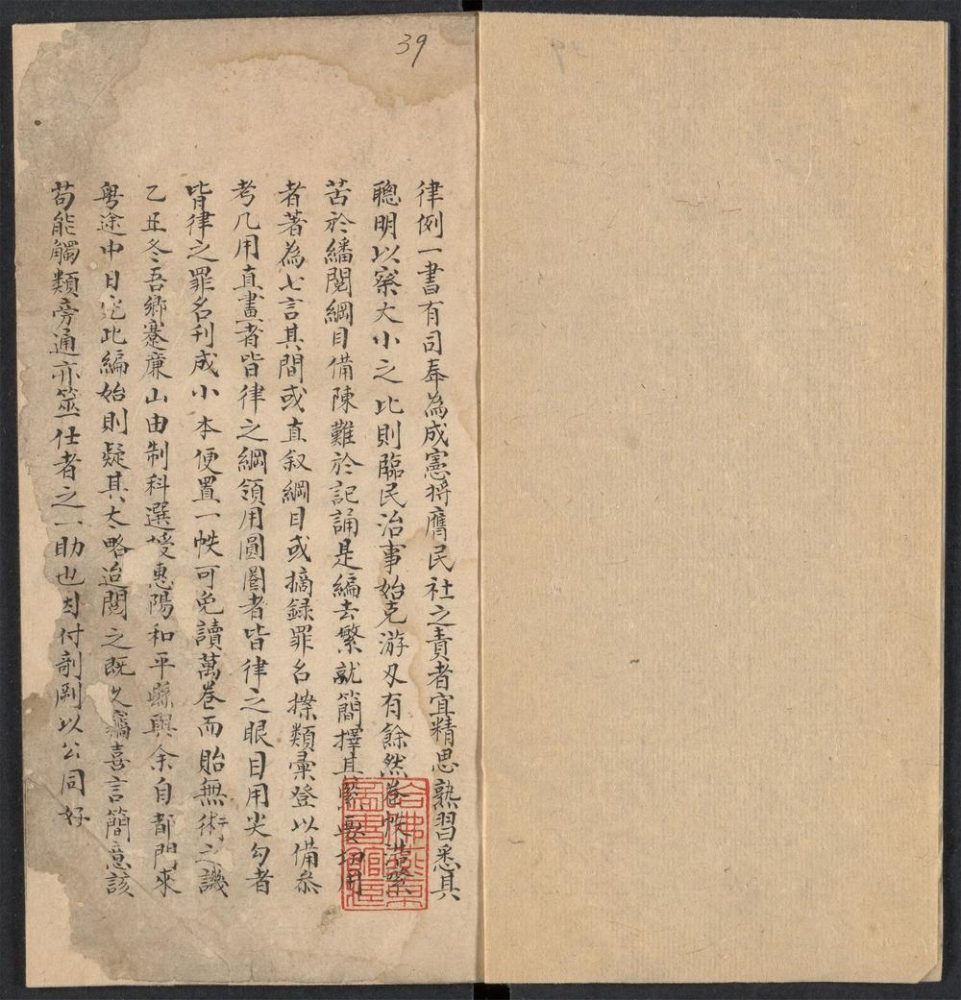 39
律例一書有司奉為成憲將膺民社之責者宜精思熟習悉其
聰明以察大小之比則臨民治事始克游刃有餘然卷帙浩繁
苦於繙閱綱目備陳難於記誦是編去繁就簡擇其緊要切用
者著為七言其間或直叙綱目或摘録罪名揆類彙登以備叅
考凡用直畫者皆律之綱領用圓圈者皆律之眼目用尖勾者
皆律之罪名刋成小本便置一帙可免讀萬卷而貽無術之譏
乙丑冬吾鄉蹇廉山由制科選授惠陽和平縣與余自都門來
粤途中日完此編始則疑其太略迨閱之既久竊喜言簡意該
苟能觸類旁通亦筮仕者之一助也因付剞劂以公同好
哈佛燕京圖書館